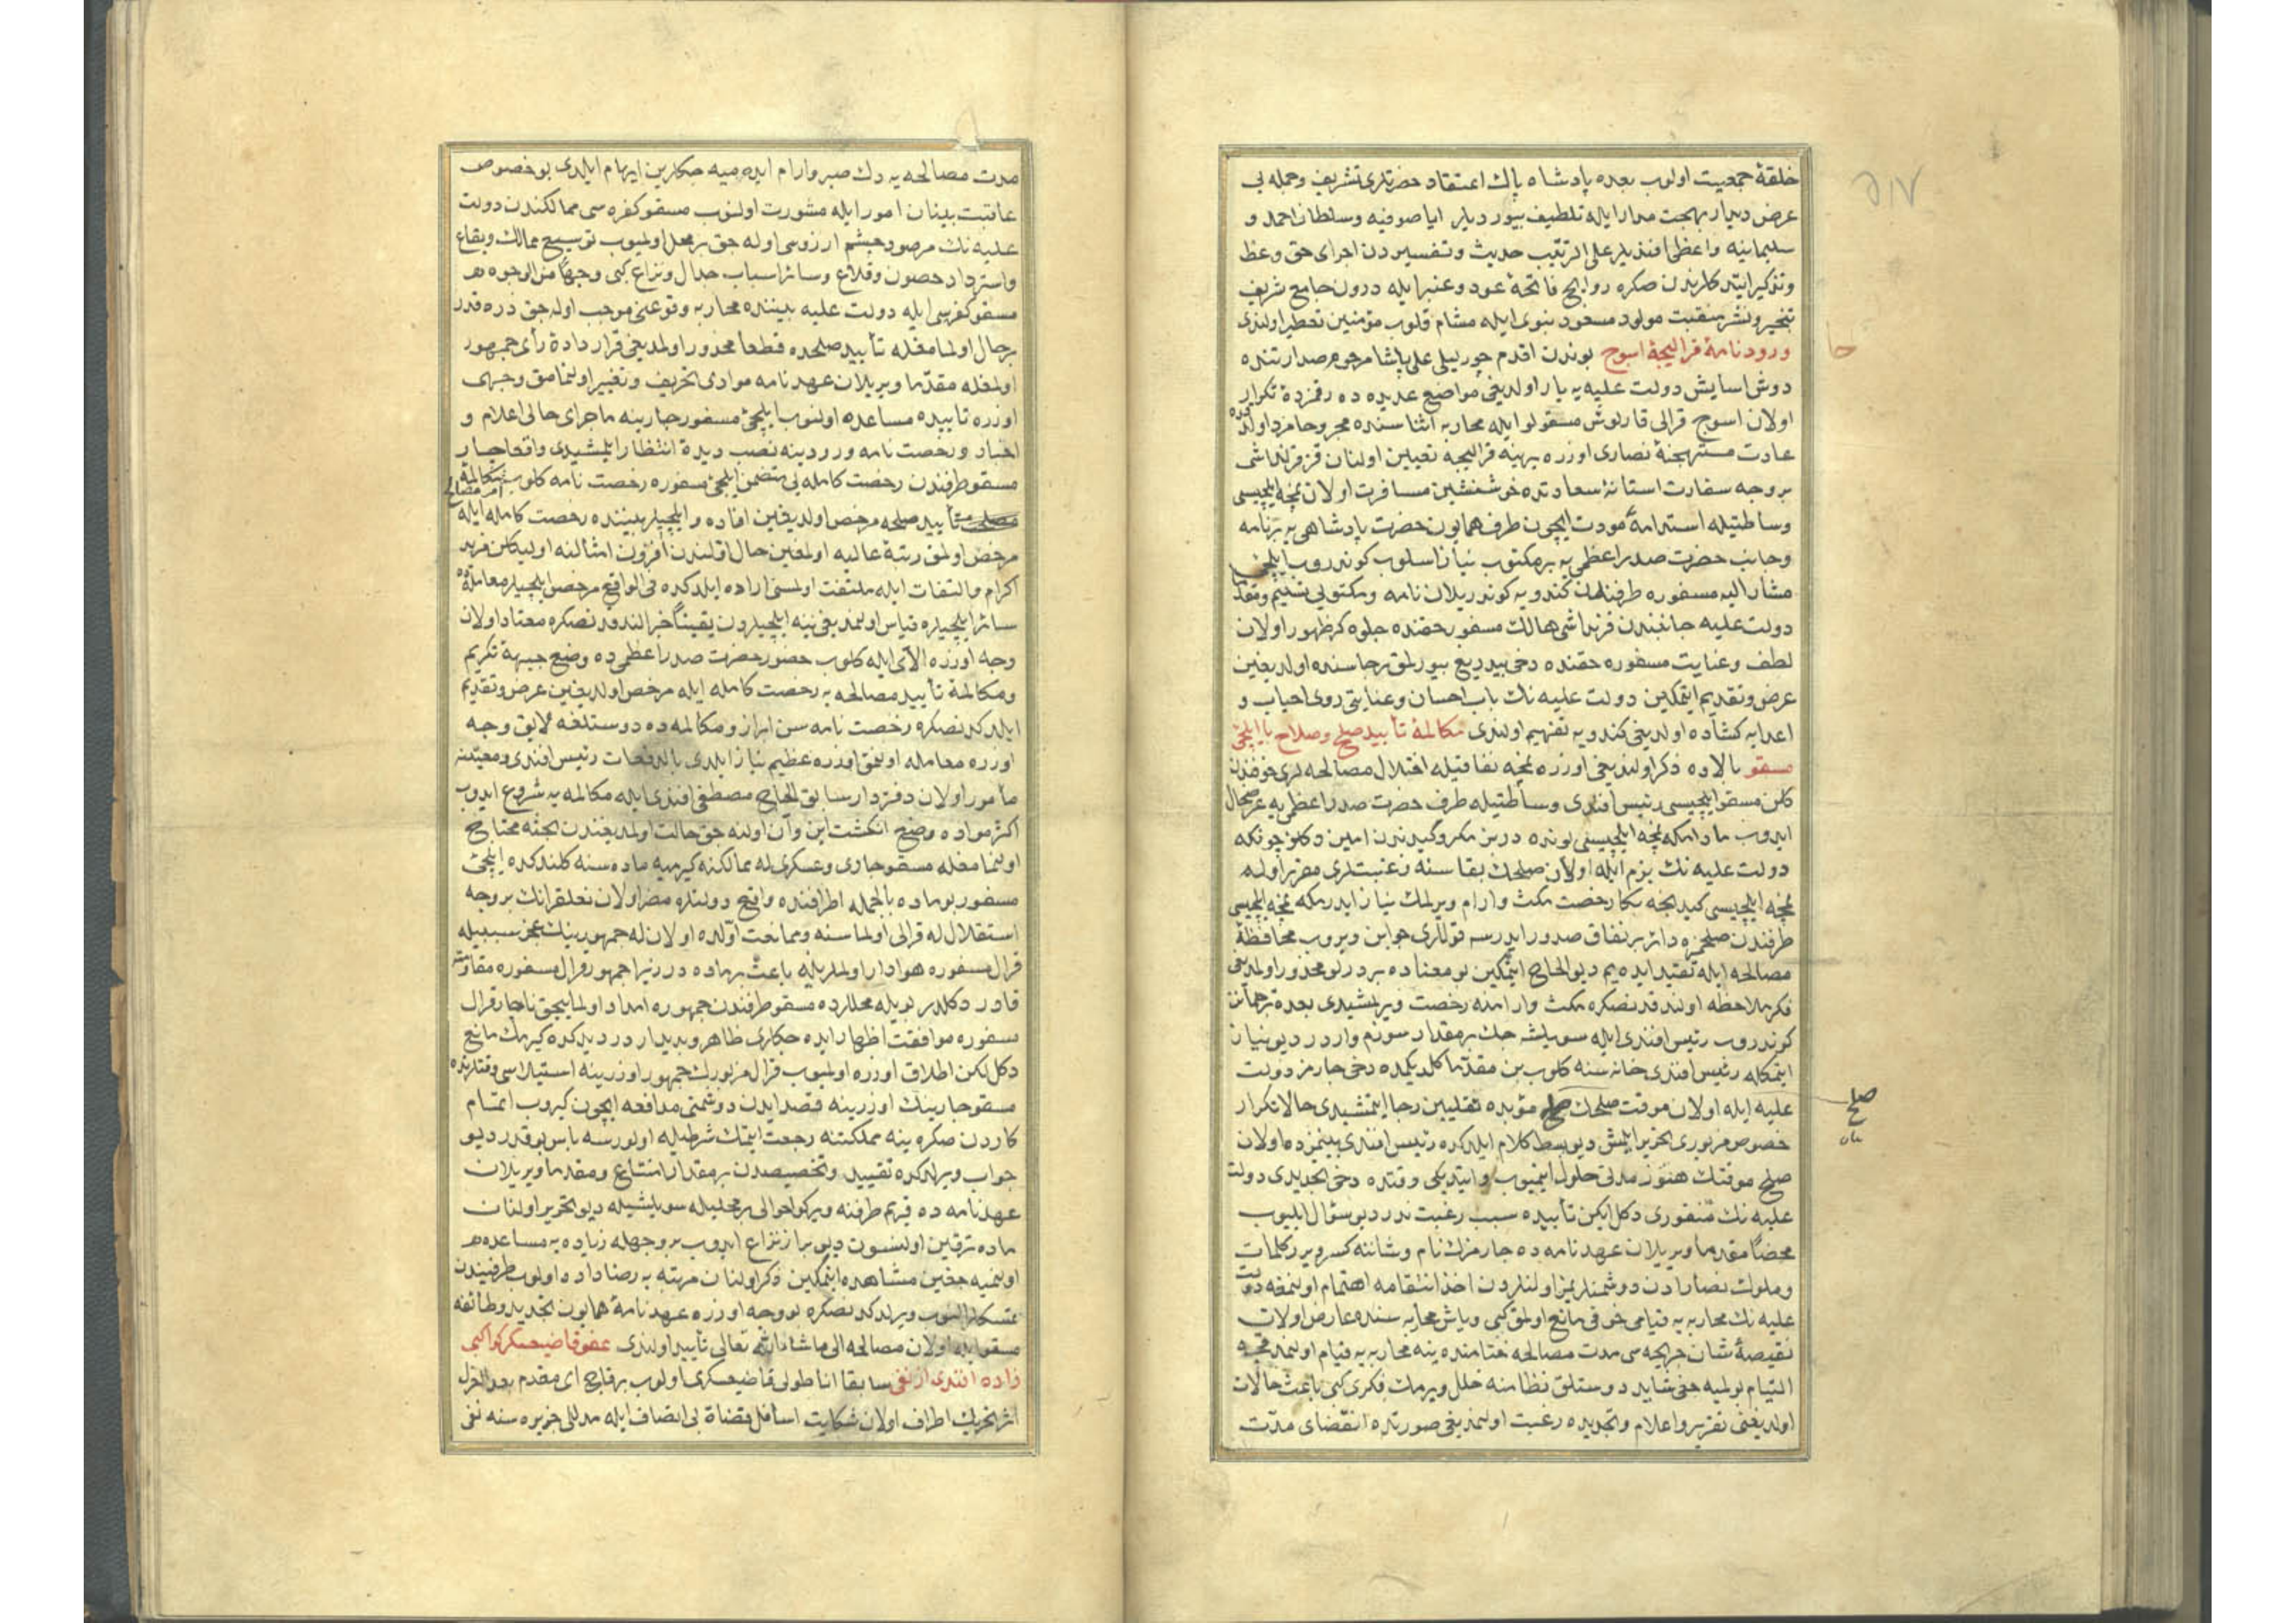 خلقهٔ جمعیت اولوب بعده پادشاه پاك اعتقاد حضرتلری تشریف وجمله یی
عرض دیدار بهجت مدار ایله تلطیف بیوردیلر ایا صوفیه وسلطان احمد و
سلیمانیه واعظی افندیلر علی الترتیب حدیث وتفسیردن اجرای حق وعظ
وتذکیر ایتدکلرندن صکره روایح فائحهٔ عود وعنبر ایله درون جامع شریف
تبخیر ونشر منقبت مولود مسعود نبوی ایله مشام قلوب مؤمنین تعطیر اولندی
ورود نامهٔ قرالیجهٔ اسوج بوندن اقدم چورلیلی علی پاشا مرحوم صدارتنده
دوش اسایش دولت علیه یه بار اولدیغی مواضع عدیده ده رقمزدهٔ تکرار
اولان اسوج قرالی قارلوش مسقولو ایله محاربه اثناسنده مجروحا مرد اولدقده
عادت مستهجنهٔ نصاری اوزره یرینه قرالیجه تعیین اولنان قز قرنداشی
بر وجه سفارت استانهٔ سعادتده خوشنشین مسافرت اولان نمچه ایلچیسی
وساطتیله استدامهٔ مودت ایچون طرف همایون حضرت پادشاهی یه بر نامه
وجانب حضرت صدر اعظمی یه بر مکتوب نیاز اسلوب کوندروب ایلچی
مشار الیه مسفوره طرفندن کندویه کوندریلان نامه ومکتوبی تسلیم ومقدما
دولت علیه جانبندن قرنداشی هالك مسفور حقنده جلوه کر ظهور اولان
لطف وعنایت مسفوره حقنده دخی بیدریغ بیورلمق رجاسنده اولدیغین
عرض وتقدیم ایتمکین دولت علیه نك باب احسان وعنایتی روی احباب و
اعدایه کشاده اولدیغی کندویه تفهیم اولندی مکالمهٔ تأبید صلح وصلاح با ایلچی
مسقو بالاده ذکر اولندیغی اوزره نمچه نفاقیله اختلال مصالحه لری خوفندن
کلن مسقو ایلچیسی رئیس افندی وساطتیله طرف حضرت صدر اعظمی یه عرضحال
ایدوب مادامکه نمچه ایلچیسی بونده در بن مکر وکیدندن امین دکلم چونکه
دولت علیه نك بزم ایله اولان صلحك بقاسنه رغبتلری مقرر اوله
نمچه ایلچیسی کیدنجه بکا رخصت مکث وارام ویرلمك نیاز ایدرمکه نمچه ایلچیسی
طرفندن صلحمزه دائر بر نفاق صدور ایدرسه قوللری جوابن ویروب محافظهٔ
مصالحه ایله تقید ایده یم دیو الحاح ایتمکین بو معناده بر درلو محذور اولمدیغی
فکر ملاحظه اولندقدنصکره مکث وارامنه رخصت ویرلمشیدی بعده ترجمانن
کوندروب رئیس افندی ایله سویلشه جك بر مقدار سوزم واردر دیو نیاز
ایتمکله رئیس افندی خانه سنه کلوب بن مقدما کلدیکمده دخی چارمز دولت
علیه ایله اولان موقت صلحك صلح مؤبده تقلیبین رجا ایتمشیدی حالا تکرار
خصوص مزبوری تحریر ایلمش دیو بسط کلام ایلدکده رئیس افندی بینمزده اولان
صلح موقتك هنوز مدتی حلول ایتمیوب وایتدیکی وقتده دخی تجدیدی دولت
علیه نك منفوری دکل ایکن تأبیده سبب رغبت ندر دیو سؤال ایلیوب
محضا مقدما ویریلان عهدنامه ده چارمزك نام وشاننه کسر ویرر کلمات
وملوك نصارادن دوشمنلریمز اولنلردن اخذ انتقامه اهتمام اولنمغه دولت
علیه نك محاربه یه قیامی خوفی مانع اولمق کبی وباش محاربه سنده عارض اولان
نقیصهٔ شان جریحه سی مدت مصالحه ختامنده ینه محاربه یه قیام اولنمدقجه
التیام بولمیه جغی شاید دوستلق نظامنه خلل ویرمك فکری کبی باعث حالات
اولدیغنی تقریر واعلام وتجدیده رغبت اولنمدیغی صورتده انقضای مدت
صلح
مدت مصالحه یه دك صبر وارام ایده میه جکلرین ایهام ایلدی بو خصوص
عاقبت بینان امور ایله مشورت اولنوب مسقو کفره سی ممالکندن دولت
علیه نك مرصود چشم ارزوسی اوله جق بر محل اولمیوب توسیع ممالك وبقاع
واسترداد حصون وقلاع وسائر اسباب جدال ونزاع کبی وجها من الوجوه
مسقو کفره سی ایله دولت علیه بیننده محاربه وقوعنی موجب اوله جق ذره قدر
بر حال اولمامغله تأبید صلحده قطعا محذور اولمدیغی قرار دادهٔ رأی جمهور
اولمغله مقدما ویریلان عهدنامه موادی تحریف وتغییر اولنمامق وجهی
اوزره تأبیده مساعده اولنوب ایلچی مسفور چارینه ماجرای حالی اعلام و
اخبار ورخصت نامه ورودینه نصب دیدهٔ انتظار ایلمشیدی واقعا چار
مسقو طرفندن رخصت کامله یی متضمن ایلچی مسفوره رخصت نامه کلوب مکالمهٔ
امر مصالحه
تأبید صلحه مرخص اولدیغین افاده وایلچیلر بیننده رخصت کامله ایله
مرخص اولمق رتبهٔ عالیه اولمغین حال اولندن افزون امثالنه اولیکلن مزید
اکرام والتفات ایله ملتفت اولمسنی اراده ایلدکده فی الواقع مرخص ایلچیلر معامله سی
سائر ایلچیلره قیاس اولنمدیغی ینه ایلچیلردن یقینا خبر الندقدنصکره معتاد اولان
وجه اوزره الای ایله کلوب حضور حضرت صدر اعظمی ده وضع جبههٔ تکریم
ومکالمهٔ تأبید مصالحه یه رخصت کامله ایله مرخص اولدیغین عرض وتقدیم
ایلدکدنصکره رخصت نامه سن ابراز ومکالمه ده دوستلغه لایق وجه
اوزره معامله اولنمق اوزره عظیم نیاز ایلدی بالدفعات رئیس افندی ومعیتنه
مأمور اولان دفتردار سابق الحاج مصطفی افندی ایله مکالمه یه شروع ایدوب
اکثر مواده وضع انکشت این وآن اولنه جق حالت اولمدیغندن بحثه محتاج
اولنمامغله مسقو چاری وعسکری له ممالکنه کیرمیه ماده سنه کلندکده ایلچی
مسفور بو ماده بالجمله اطرافنده واقع دولتلره مضر اولان تعلقراتك بر وجه
استقلال له قرالی اولماسنه وممانعت آلده اولان له جمهورینك عجزی سببیله
قرال مسفوره هوادار اولملریله باعث بر ماده در زیرا جمهور قرال مسفوره مقاومته
قادر دکلدر بویله محللرده مسقو طرفندن جمهوره امداد اولمایجق ناچار قرال
مسفوره موافقت اظهار ایده جکلری ظاهر وبدیدار در دیدکده کیرمك مانع
دکل لکن اطلاق اوزره اولمیوب قرال مزبورك جمهور اوزرینه استیلاسی وقتلرنده
مسقو چارینك اوزرینه قصد ایدن دوشمنی مدافعه ایچون کیروب اتمام
کاردن صکره ینه مملکتنه رجعت ایتمك شرطیله اولورسه باس یوقدر دیو
جواب ویرلدکده تقیید وتخصیصدن بر مقدار امتناع ومقدما ویریلان
عهدنامه ده قریم طرفنه ویرکو احوالی بر محلیله سویلشیله دیو تحریر اولنان
ماده ترقین اولنسون دیو براز نزاع ایدوب بر وجهله زیاده یه مساعده
اولنمیه جغین مشاهده ایتمکین ذکر اولنان مرتبه یه رضا داده اولوب طرفیندن
تمسکلر النوب ویرلدکدنصکره بو وجه اوزره عهدنامهٔ همایون تجدید وطائفه
مسقو ایله اولان مصالحه الی ماشاء الله تعالی تأبید اولندی عفو قاضیعسکر کواکبی
زاده افندی از نفی سابقا اناطولی قاضیعسکری اولوب بر قاچ ای مقدم بعد العزل
اثر تحریك اطراف اولان شکایت اسافل قضاة بی انصاف ایله مدللی جزیره سنه نفی